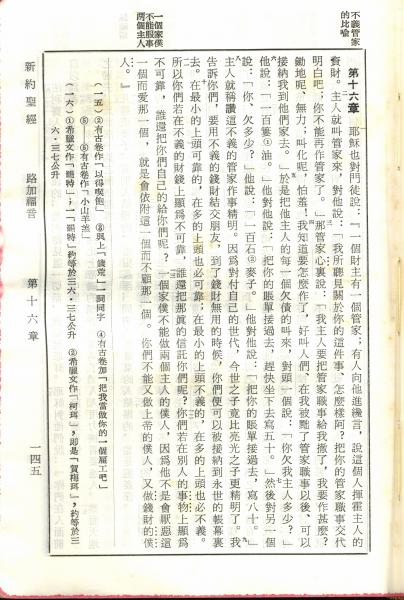 不義管家
的比喻
一個家僕
不能服事
兩個主人
第十六章
耶穌也對門徒說：『一個財主有一個管家；有人向他進讒言，說這個人揮霍主人的
貲財。主人就叫管家來，對他說：「我所聽見關於你的這件事、怎麼樣阿？把你的管家職事交代
明白吧；你不能再作管家了。」那管家心裏說：「我主人要把管家職事給我撤了，我要作甚麼？
鋤地呢、無力；叫化呢、怕羞！我知道要怎麼作了，好叫人們、在我被黜了管家職事以後、可以
接納我到他們家去。」於是把他主人的每一個欠債的叫來，對頭一個說：「你欠我主人多少？」
他說：「一百簍①油。」他對他說：「把你的賬單接過去，趕快坐下去寫五十。」然後對另一個
說：「你、欠多少？」他說：「一百石②麥子。」他對他說：「把你的賬單接過去，寫八十。」
主人就稱讚這不義的管家作事精明。因爲對付自己的世代，今世之子竟比亮光之子更精明了。我
告訴你們，要用不義的錢財結交朋友，到了錢財無用的時候，你們便可以被接納到永世的帳幕裏
去。在最小的上頭可靠的，在多的上頭也必可靠；在最小的上頭不義的，在多的上頭也必不義。
所以你們若在不義的財錢上顯爲不可靠，誰還把那眞的信託你們呢？你們若在別人的事物上顯爲
不可靠，誰還把你們自己的給你們呢？一個家僕不能做兩個主人的僕人，因爲他不是會厭惡這
一個而愛那一個，就是會依附這一個而不顧那一個。你們不能又做上帝的僕人，又做錢財的僕
人。』
（一五）②有古卷作「以得喫飽」 ③與上「饑荒」一詞同字 ④有古卷加「把我當做你的一個雇工吧」
⑤有古卷作「小山羊羔」
（一六）①希臘文作「罷特」；一「罷特」約等於三六·三七公升 ②希臘文作「柯珥」，即是「賀梅珥」，約等於三
六·三七公升
新約聖經 路加福音 第十六章 一四五